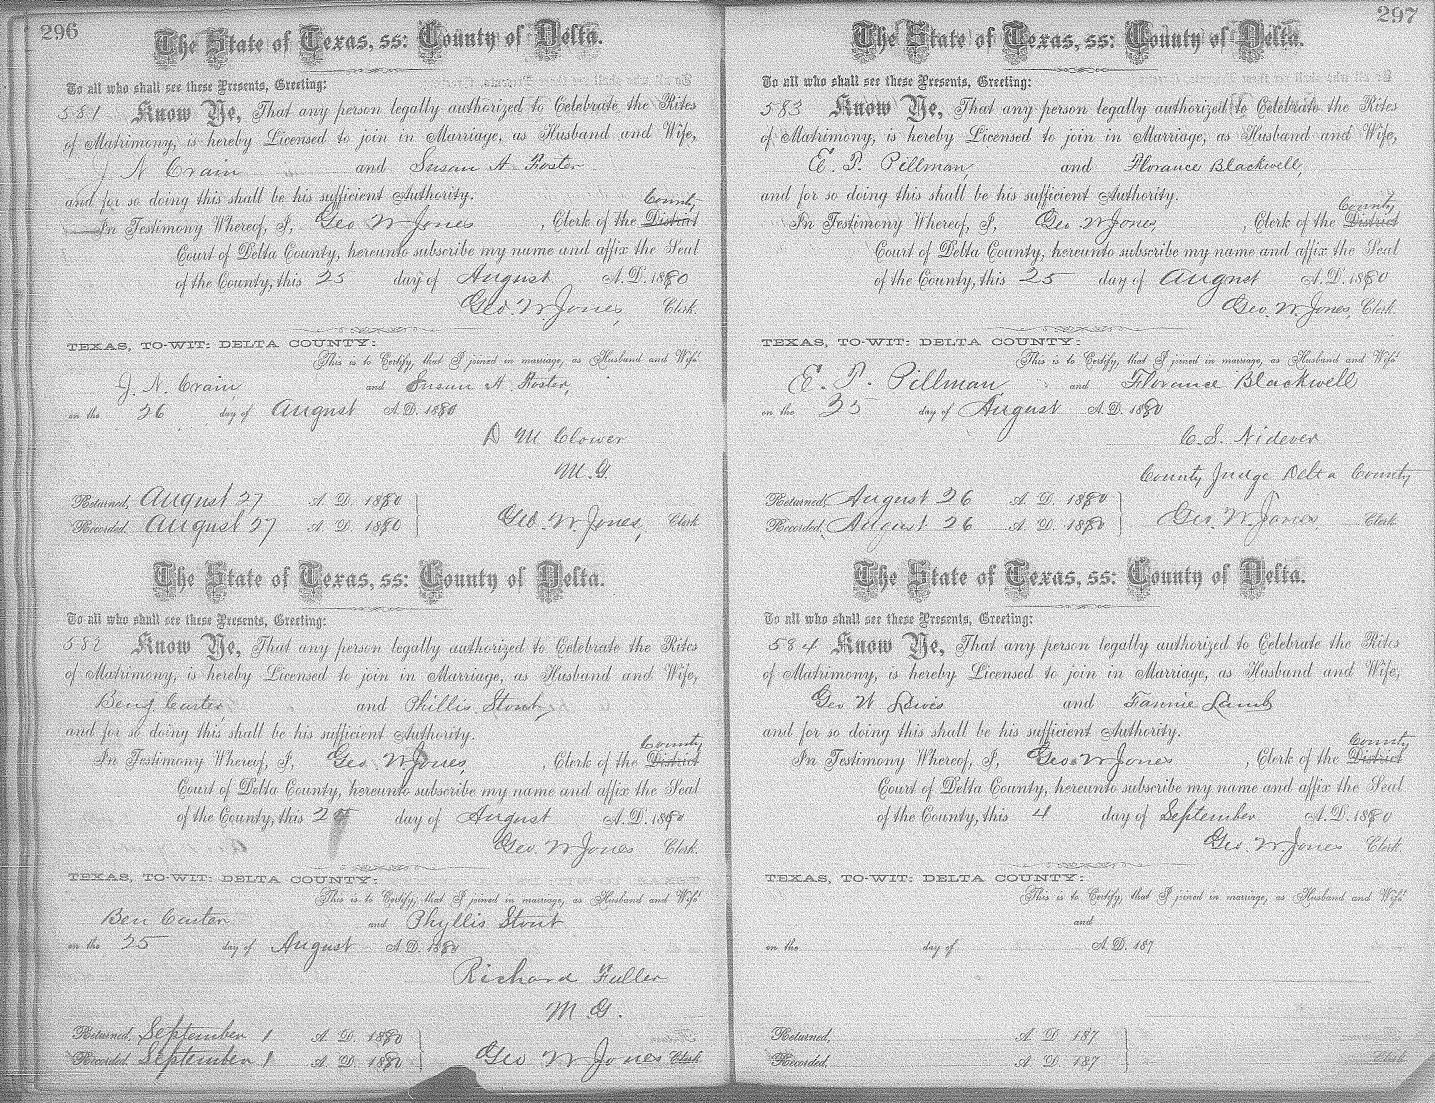 296
The State of Texas, ss: County of Delta.
To all who shall see these Presents, Greeting:
581 Know Ye, That any person legally authorized to Celebrate the Rites
of Matrimony, is hereby Licensed to join in Marriage, as Husband and Wife,
J N Crain and Susan A Foster
and for so doing this shall be his sufficient Authority.
County
In Testimony Whereof, I, Geo W Jones, Clerk of the District
Court of Delta County, hereunto subscribe my name and affix the Seal
of the County, this 25 day of August A.D. 1880
Geo. W Jones, Clerk.
TEXAS, TO-WIT: DELTA COUNTY:
This is to Certify, that I joined in marriage, as Husband and Wife
J. N. Crain and Susan A Foster,
on the 26 day of August A.D. 1880
D M Clower
M.G.
Returned, August 27 A. D. 1880
Recorded, August 27 A. D. 1880 Geo. W Jones, Clerk
The State of Texas, ss: County of Delta.
To all who shall see these Presents, Greeting:
582 Know Ye, That any person legally authorized to Celebrate the Rites
of Matrimony, is hereby Licensed to join in Marriage, as Husband and Wife,
Benj Carter, and Phillis Stout,
and for so doing this shall be his sufficient Authority.
County
In Testimony Whereof, I, Geo. W Jones, Clerk of the District
Court of Delta County, hereunto subscribe my name and affix the Seal
of the County, this day of August A.D. 1880
Geo. W Jones Clerk.
TEXAS, TO-WIT: DELTA COUNTY:
This is to Certify, that I joined in marriage, as Husband and Wife
Ben Carter and Phyllis Stout
on the 25 day of August A.D. 1880
Richard Fuller
M. G.
Returned, September 1 A. D. 1880
Recorded, September 1 A. D. 1880 Geo W Jones Clerk
297
The State of Texas, ss: County of Delta.
To all who shall see these Presents, Greeting:
583 Know Ye, That any person legally authorized to Celebrate the Rites
of Matrimony, is hereby Licensed to join in Marriage, as Husband and Wife,
E. P. Pillman, and Florance Blackwell,
and for so doing this shall be his sufficient Authority.
County
In Testimony Whereof, I, Geo. W Jones, Clerk of the District
Court of Delta County, hereunto subscribe my name and affix the Seal
of the County, this 25 day of August A.D. 1880
Geo. W. Jones, Clerk.
TEXAS, TO-WIT: DELTA COUNTY:
This is to Certify, that I joined in marriage, as Husband and Wife
E. P. Pillman and Florance Blackwell
on the 25 day of August A.D. 1880
C. S. Nidever
County Judge Delta County
Returned, August 26 A. D. 1880
Recorded, August 26 A. D. 1880 Geo. W. Jones Clerk
The State of Texas, ss: County of Delta.
To all who shall see these Presents, Greeting:
584 Know Ye, That any person legally authorized to Celebrate the Rites
of Matrimony, is hereby Licensed to join in Marriage, as Husband and Wife,
Geo W Lewis and Fannie Lamb
and for so doing this shall be his sufficient Authority.
County
In Testimony Whereof, I, Geo W Jones, Clerk of the District
Court of Delta County, hereunto subscribe my name and affix the Seal
of the County, this 4 day of September A.D. 1880
Geo. W Jones Clerk.
TEXAS, TO-WIT: DELTA COUNTY:
This is to Certify, that I joined in marriage, as Husband and Wife
and
on the day of A.D. 187
Returned, A. D. 187
Recorded, A. D. 187 Clerk